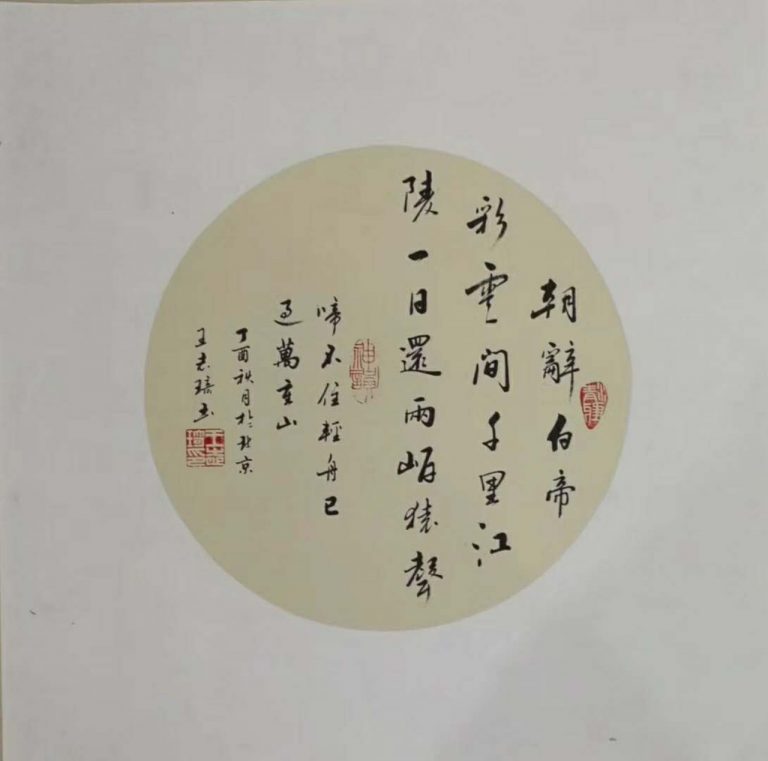 朝辭白帝
彩雲間千里江
陵一日還兩岸猿聲
啼不住輕舟已
過萬重山
丁酉秋月於北京
王志琦書